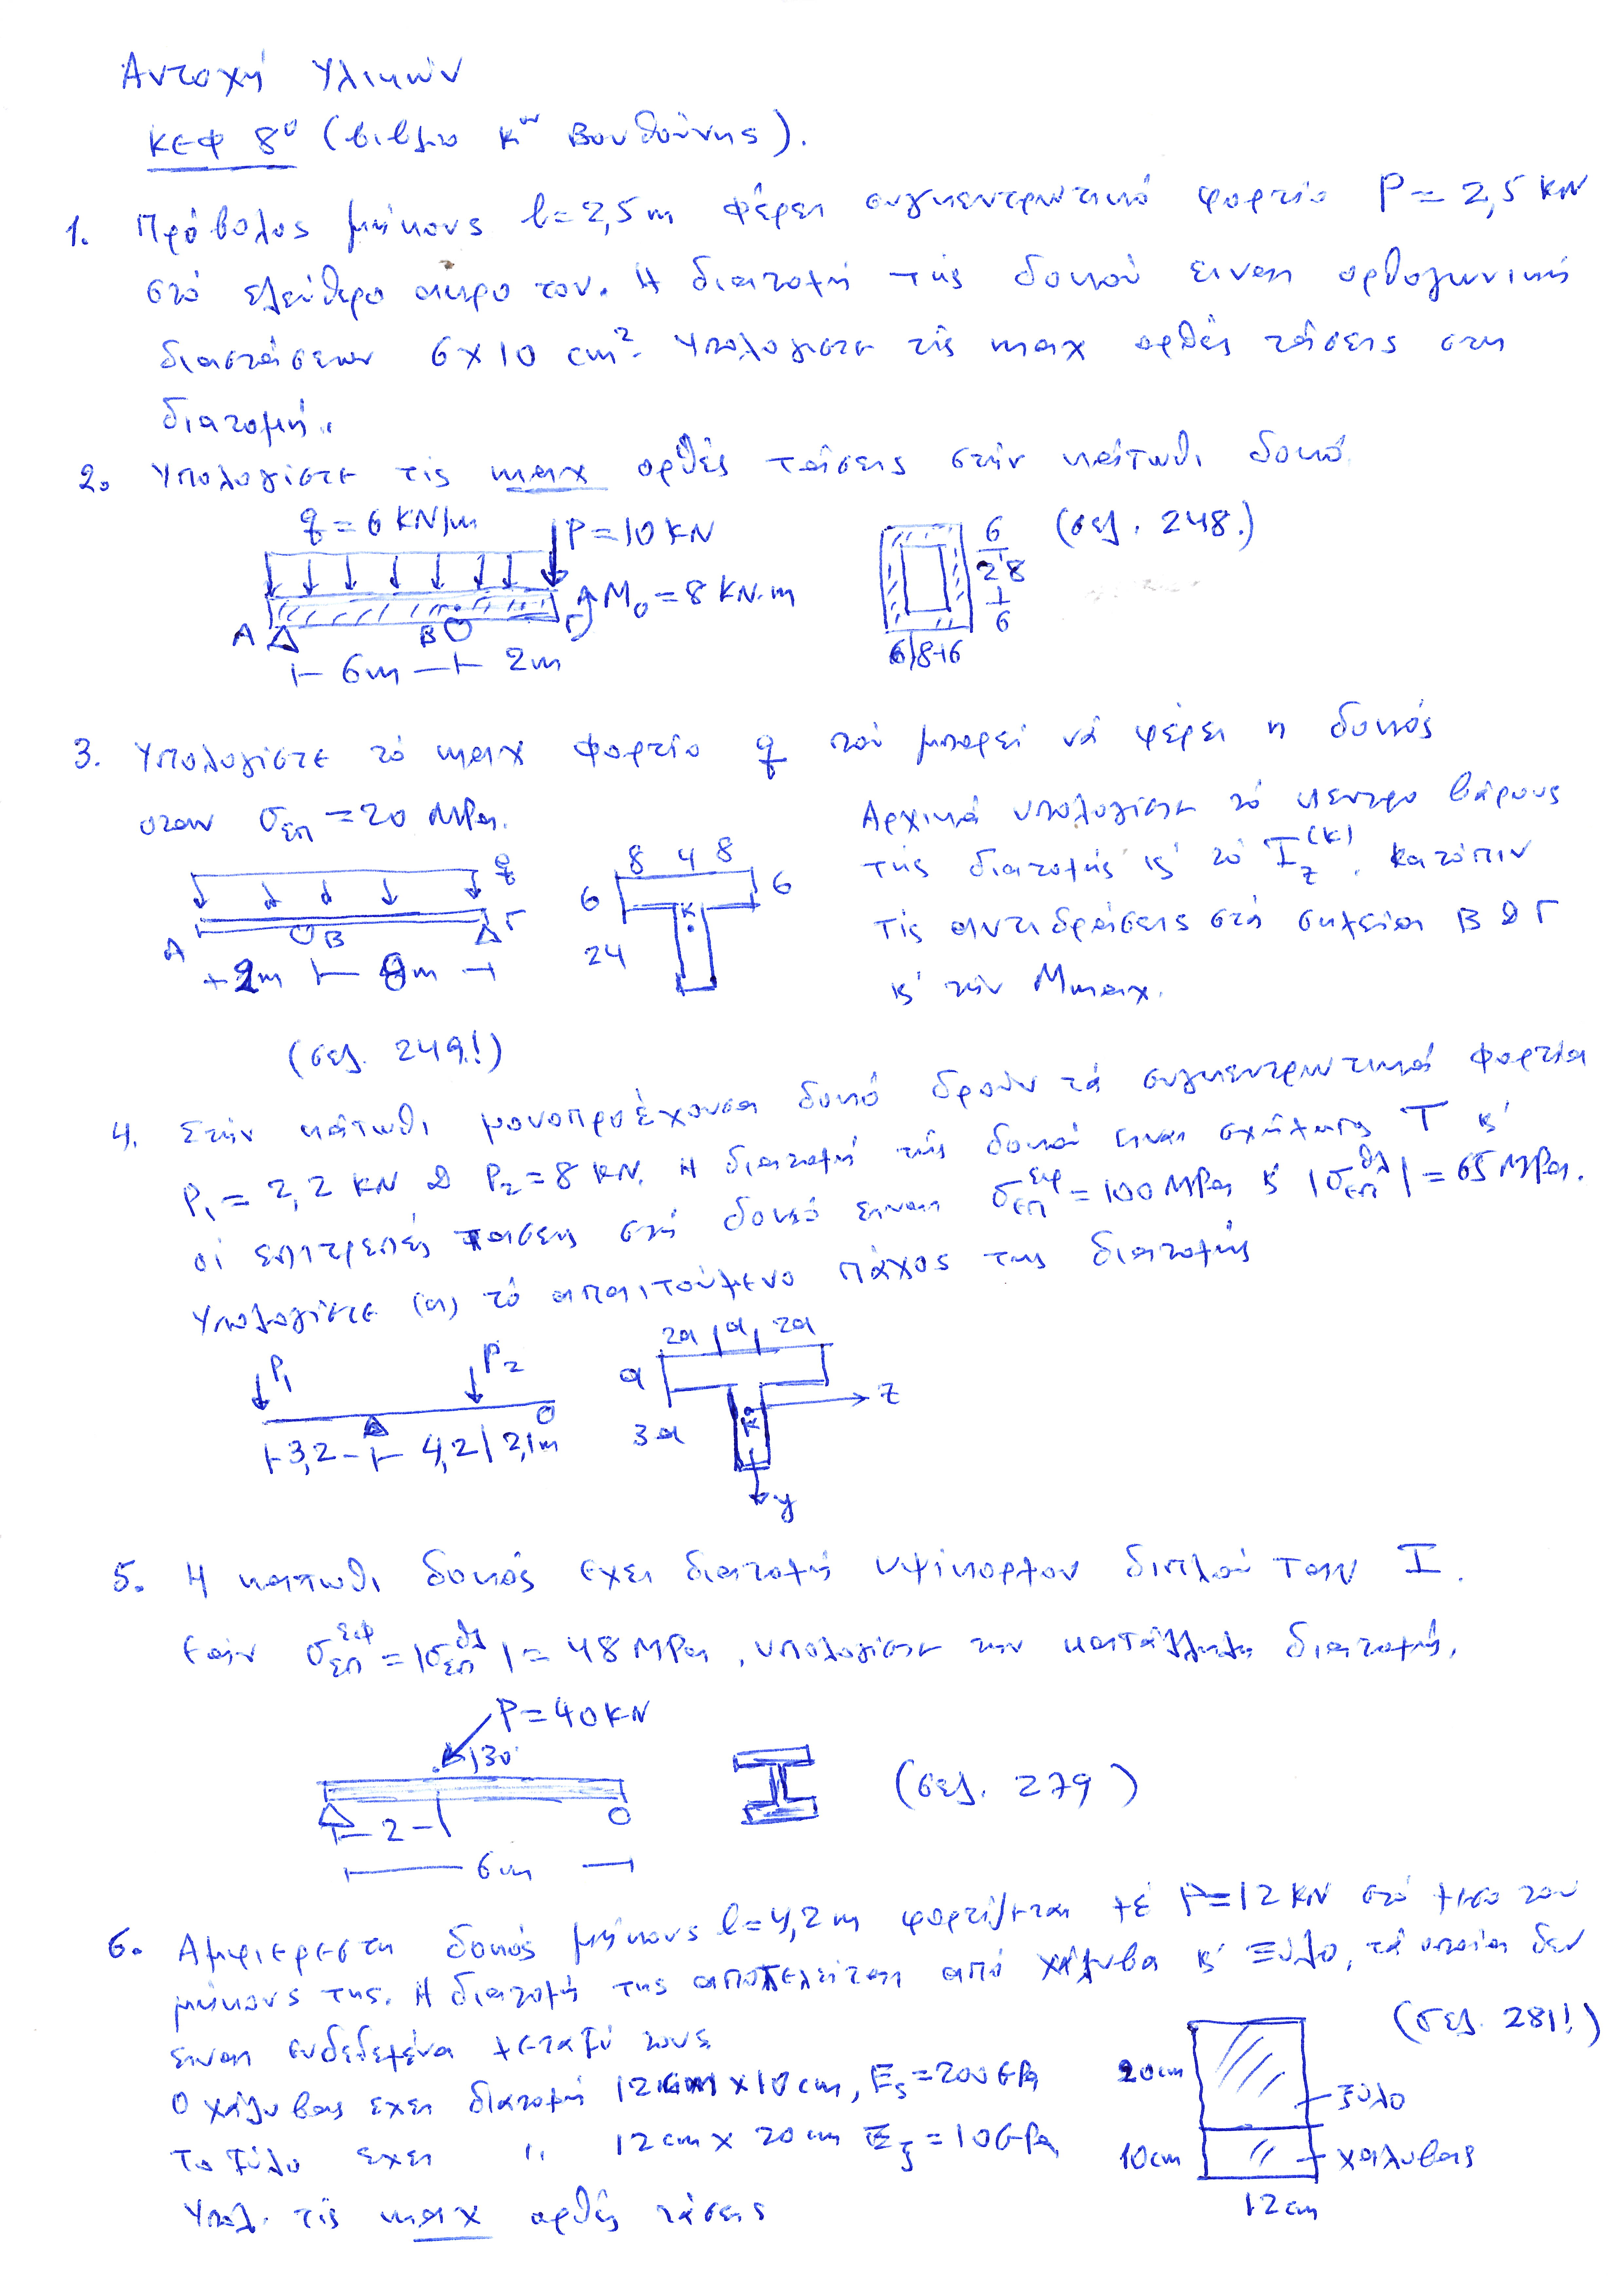 Αντοχή Υλικών
ΚΕΦ 8º (βιβλίο κου Βουθούνης).
1. Πρόβολος μήκους l=2,5m φέρει συγκεντρωτικό φορτίο P=2,5 KN
στό ελεύθερο άκρο του. Η διατομή τής δοκού είναι ορθογωνική
διαστάσεων 6×10 cm². Υπολογίστε τίς max ορθές τάσεις στη
διατομή.
2. Υπολογίστε τίς max ορθές τάσεις στήν κάτωθι δοκό.
q=6 KN/m P=10 KN (σελ. 248.)
6
8
6
M₀=8 KN·m
A B Γ
6m 2m
6 8 6
3. Υπολογίστε τό max φορτίο q πού μπορεί νά φέρει η δοκός
όταν σεπ =20 MPa.
Αρχικά υπολογίστε τό κέντρο βάρους
τής διατομής κ' τό Iz(κ). Κατόπιν
τίς αντιδράσεις στά σημεία Β & Γ
κ' τήν Mmax.
q
A B Γ
2m 8m
8 4 8
6 6
24
K
(σελ. 249!)
4. Στήν κάτωθι μονοπροέχουσα δοκό δρούν τά συγκεντρωτικά φορτία
P₁=2,2 KN & P₂=8 KN. Η διατομή τής δοκού είναι σχήματος T κ'
οί επιτρεπές τάσεις στή δοκό είναι σεπεφ=100 MPa κ' |σεπθλ|=65 MPa.
Υπολογίστε (a) τό απαιτούμενο πάχος της διατομής
P₁ P₂
3,2 4,2 2,1m
2a a 2a
a
3a
K
z
y
5. Η κάτωθι δοκός έχει διατομή υψίκορμου διπλού ταυ I.
Εάν σεπεφ=|σεπθλ|=48 MPa, υπολογίστε την κατάλληλη διατομή.
P=40KN
30°
2
6m
(σελ. 279)
6. Αμφιέρειστη δοκός μήκους l=4,2m φορτίζεται μέ P=12 KN στό μέσο του
μήκους της. Η διατομή της αποτελείται από χάλυβα κ' ξύλο, τά οποία δεν
είναι συνδεδεμένα μεταξύ τους. (σελ. 281!)
Ο χάλυβας έχει διατομή 12cm×10cm, Es=200GPa
Το ξύλο έχει " 12cm × 20cm Eξ=10GPa
Υπολ. τίς max ορθές τάσεις
20cm
ξύλο
10cm
χάλυβας
12cm